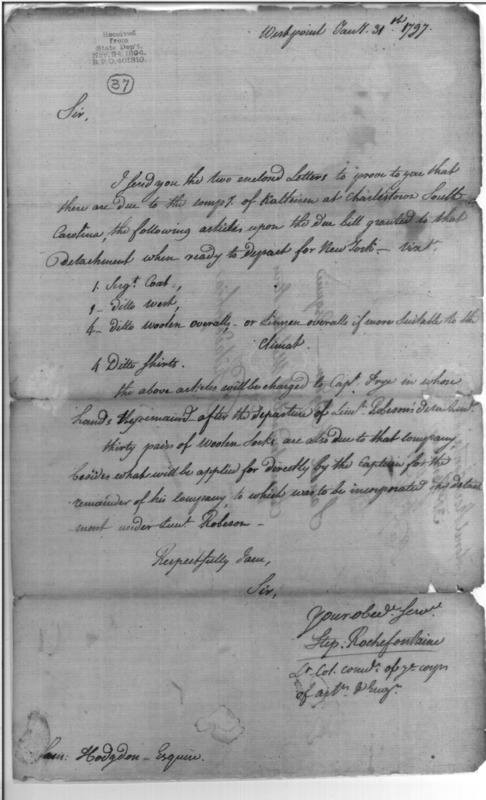 Received
from
State Dep't.
Nov. 24, 1894.
R.P.O. 401810.
37
Westpoint Jan. 31th 1797.
Sir,
I send you the two enclosed Letters to prove to you that
there are due to the Compy. of Kalteisen at Charlestown South
Carolina, the following articles upon the Due bill granted to that
Detachment when ready to depart for New York — vizt.
1. Sergt. Coat,
1 — ditto West,
4 — ditto Woolen overalls, — or Linnen overalls if more Suitable to the
Climat.
4 Ditto Shirts.
the above articles will be charged to Capt. Frye in whose
hands they remaind after the departure of Lieut. Robeson's detachmt.
thirty pairs of Woolen Socks are also due to that Company
besides what will be applied for directly by the Captain for the
remainder of his Company, to which was to be incorporated the detach
ment under Lieut. Robeson —
Respectfully I am,
Sir,
Your obedt. Servt.
Step. Rochefontaine
Lt. Col. comdt. of ye corps
of arts. & Engrs.
Sam: Hodgdon — Esquire.